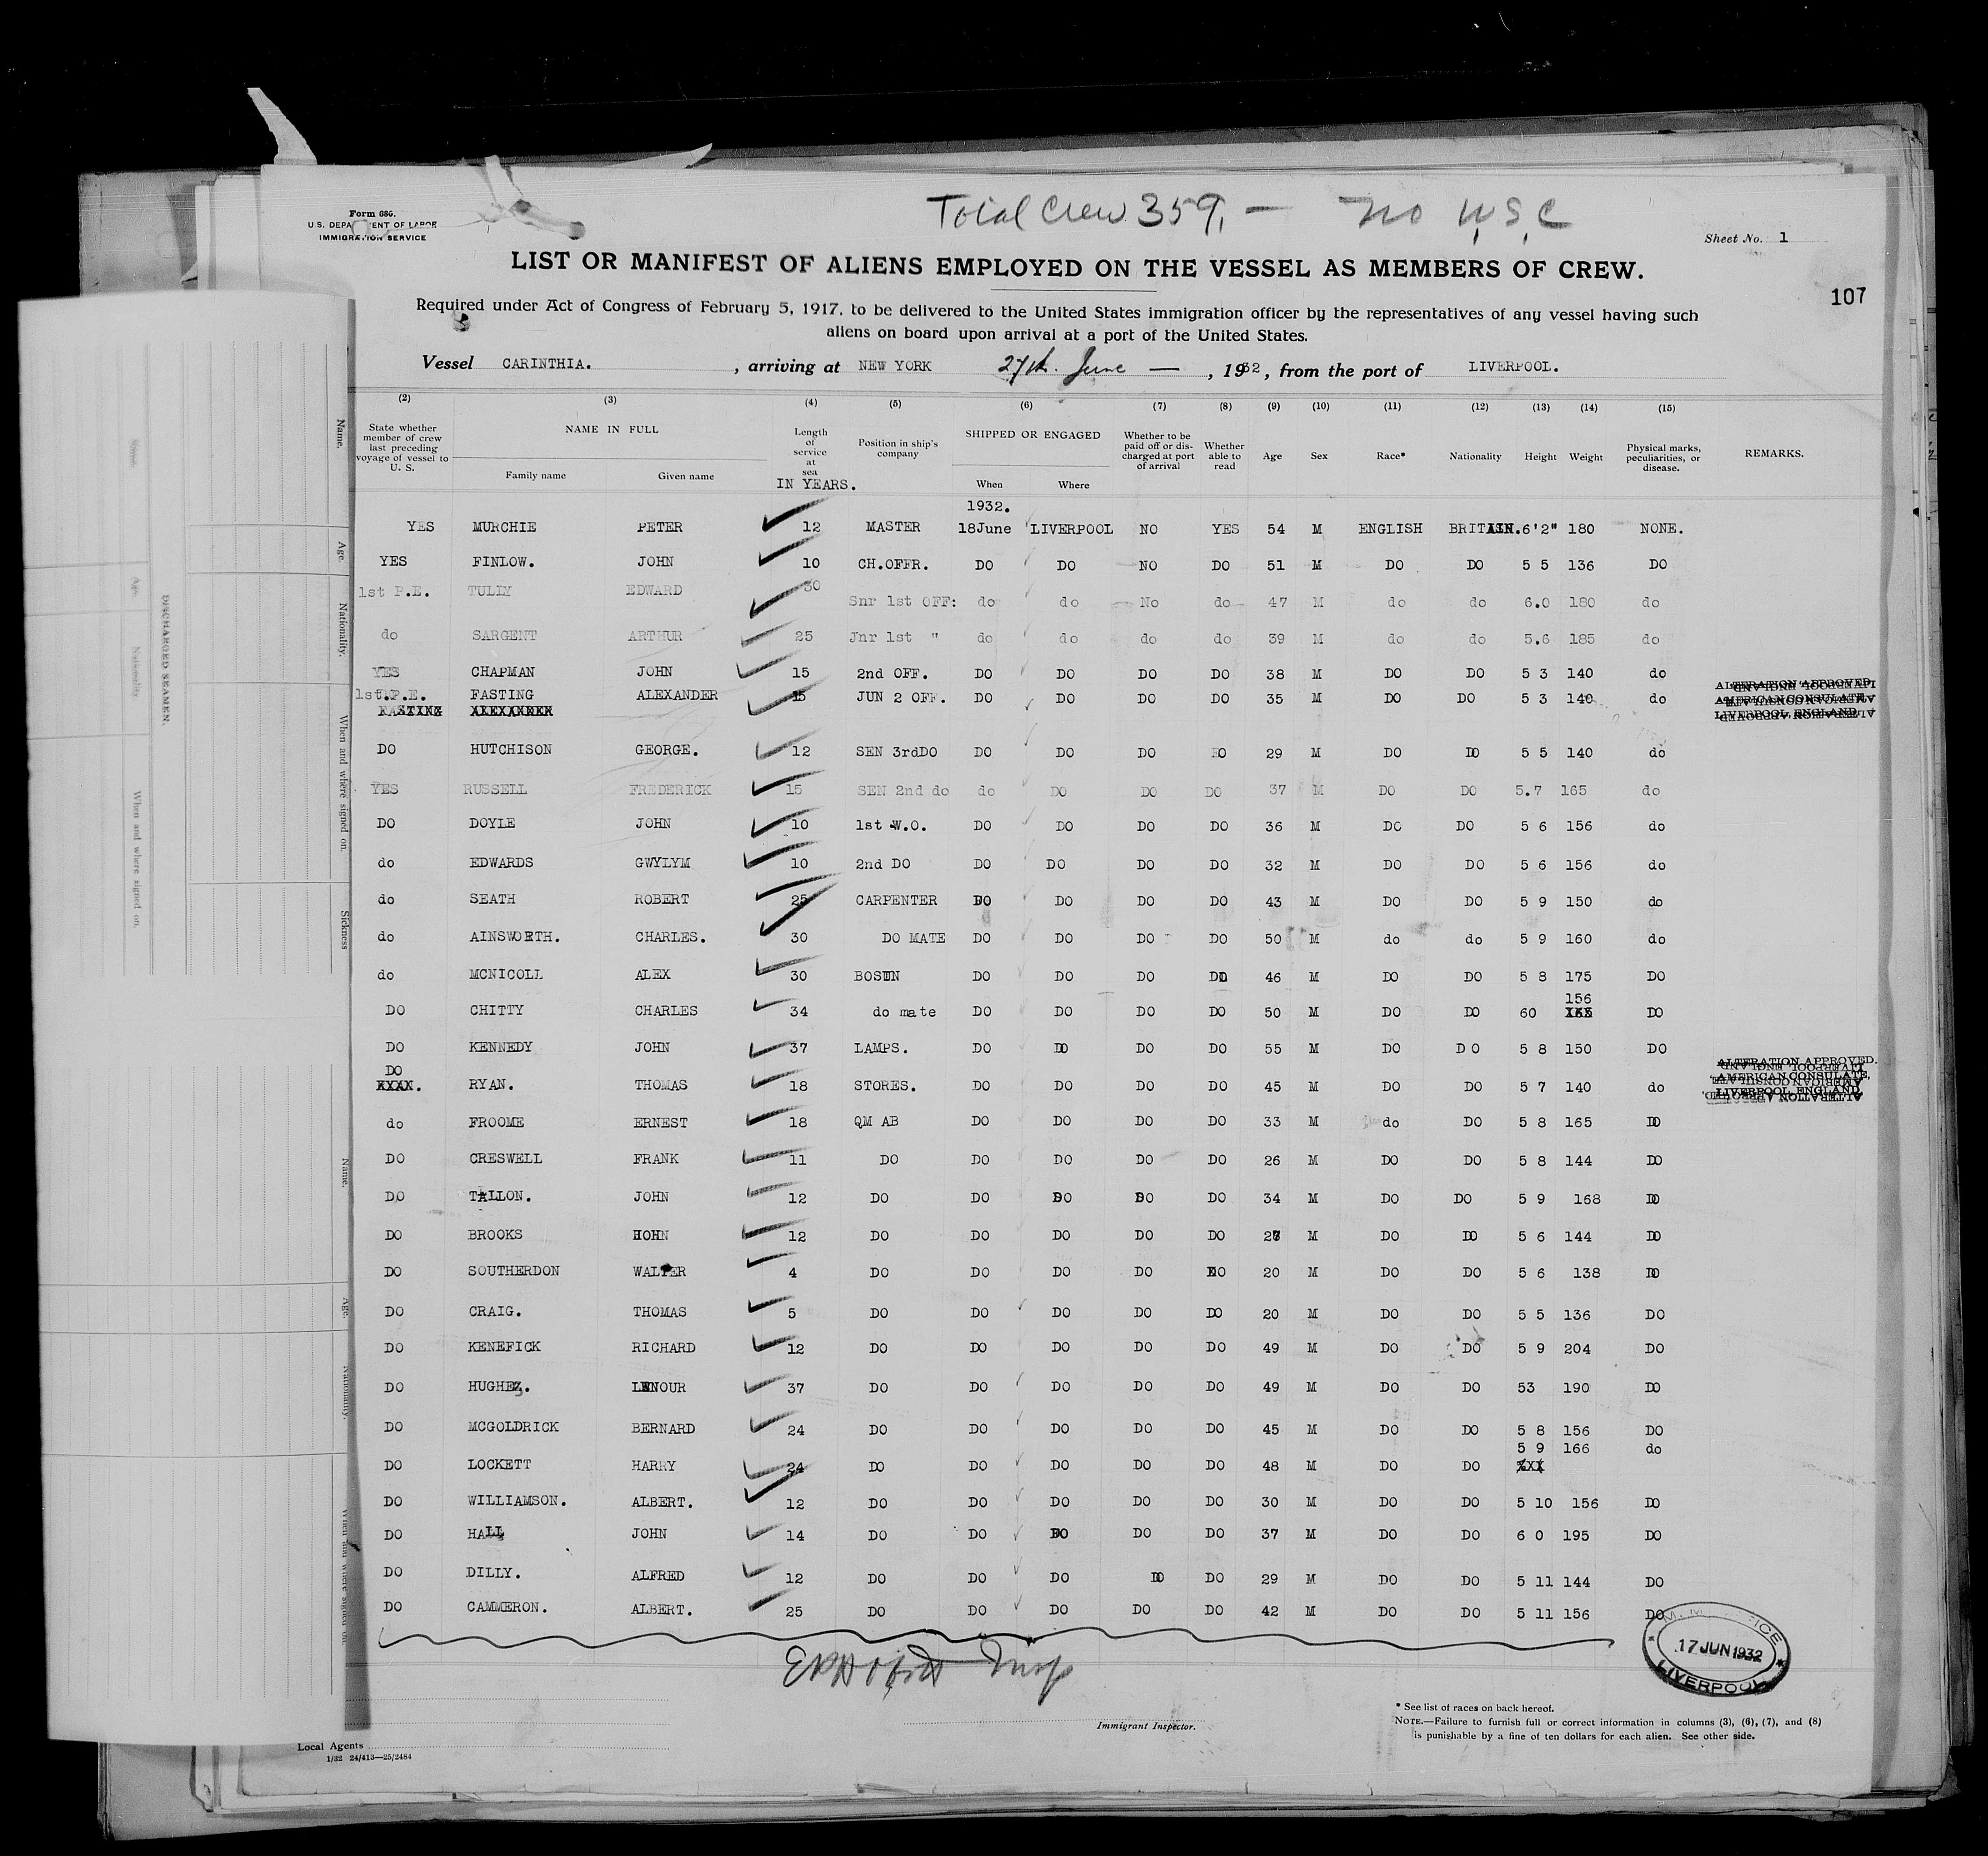 Total Crew 359, — no U.S.C
Form 686.
U.S. DEPARTMENT OF LABOR
IMMIGRATION SERVICE
Sheet No. 1
LIST OR MANIFEST OF ALIENS EMPLOYED ON THE VESSEL AS MEMBERS OF CREW.
107
Required under Act of Congress of February 5, 1917, to be delivered to the United States immigration officer by the representatives of any vessel having such
aliens on board upon arrival at a port of the United States.
Vessel CARINTHIA. , arriving at NEW YORK 27th. June — , 1932, from the port of LIVERPOOL.
(2) (3) (4) (5) (6) (7) (8) (9) (10) (11) (12) (13) (14) (15)
State whether member of crew last preceding voyage of vessel to U. S.
NAME IN FULL
Family name Given name
Length of service at sea
IN YEARS.
Position in ship's company
SHIPPED OR ENGAGED
When Where
Whether to be paid off or discharged at port of arrival
Whether able to read
Age Sex Race* Nationality Height Weight
Physical marks, peculiarities, or disease.
REMARKS.
1932.
YES MURCHIE PETER 12 MASTER 18June LIVERPOOL NO YES 54 M ENGLISH BRITAIN. 6'2" 180 NONE.
YES FINLOW. JOHN 10 CH.OFFR. DO DO NO DO 51 M DO DO 5 5 136 DO
1st P.E. TULLY EDWARD 30 Snr 1st OFF: do do No do 47 M do do 6.0 180 do
do SARGENT ARTHUR 25 Jnr 1st " do do do do 39 M do do 5.6 185 do
YES CHAPMAN JOHN 15 2nd OFF. DO DO DO DO 38 M DO DO 5 3 140 do
1st.P.E. FASTING ALEXANDER 15 JUN 2 OFF. DO DO DO DO 35 M DO DO 5 3 140 do
FASTING ALEXANDER
ALTERATION APPROVED.
AMERICAN CONSULATE,
LIVERPOOL, ENGLAND
DO HUTCHISON GEORGE. 12 SEN 3rdDO DO DO DO DO 29 M DO DO 5 5 140 do
YES RUSSELL FREDERICK 15 SEN 2nd do do DO DO DO 37 M DO DO 5.7 165 do
DO DOYLE JOHN 10 1st W.O. DO DO DO DO 36 M DO DO 5 6 156 do
do EDWARDS GWYLYM 10 2nd DO DO DO DO DO 32 M DO DO 5 6 156 do
do SEATH ROBERT 25 CARPENTER DO DO DO DO 43 M DO DO 5 9 150 do
do AINSWORTH. CHARLES. 30 DO MATE DO DO DO DO 50 M do do 5 9 160 do
do MCNICOLL ALEX 30 BOSUN DO DO DO DO 46 M DO DO 5 8 175 DO
DO CHITTY CHARLES 34 do mate DO DO DO DO 50 M DO DO 60 156 DO
DO KENNEDY JOHN 37 LAMPS. DO DO DO DO 55 M DO DO 5 8 150 DO
DO RYAN. THOMAS 18 STORES. DO DO DO DO 45 M DO DO 5 7 140 do
ALTERATION APPROVED.
AMERICAN CONSULATE,
LIVERPOOL, ENGLAND
do FROOME ERNEST 18 QM AB DO DO DO DO 33 M do DO 5 8 165 DO
DO CRESWELL FRANK 11 DO DO DO DO DO 26 M DO DO 5 8 144 DO
DO TALLON. JOHN 12 DO DO DO DO DO 34 M DO DO 5 9 168 DO
DO BROOKS HOHN 12 DO DO DO DO DO 27 M DO DO 5 6 144 DO
DO SOUTHERDON WALTER 4 DO DO DO DO DO 20 M DO DO 5 6 138 DO
DO CRAIG. THOMAS 5 DO DO DO DO DO 20 M DO DO 5 5 136 DO
DO KENEFICK RICHARD 12 DO DO DO DO DO 49 M DO DO 5 9 204 DO
DO HUGHES. LENOUR 37 DO DO DO DO DO 49 M DO DO 53 190 DO
DO MCGOLDRICK BERNARD 24 DO DO DO DO DO 45 M DO DO 5 8 156 DO
DO LOCKETT HARRY 24 DO DO DO DO DO 48 M DO DO 5 9 166 do
DO WILLIAMSON. ALBERT. 12 DO DO DO DO DO 30 M DO DO 5 10 156 DO
DO HALL JOHN 14 DO DO DO DO DO 37 M DO DO 6 0 195 DO
DO DILLY. ALFRED 12 DO DO DO DO DO 29 M DO DO 5 11 144 DO
DO CAMMERON. ALBERT. 25 DO DO DO DO DO 42 M DO DO 5 11 156 DO
17 JUN 1932
LIVERPOOL
Immigrant Inspector.
* See list of races on back hereof.
NOTE.—Failure to furnish full or correct information in columns (3), (6), (7), and (8)
is punishable by a fine of ten dollars for each alien. See other side.
Local Agents
1/32 24/413—25/2484
DISCHARGED SEAMEN.
Name. Age. Nationality. When and where signed on. Sickness
Name. Age. Nationality. When and where signed on.